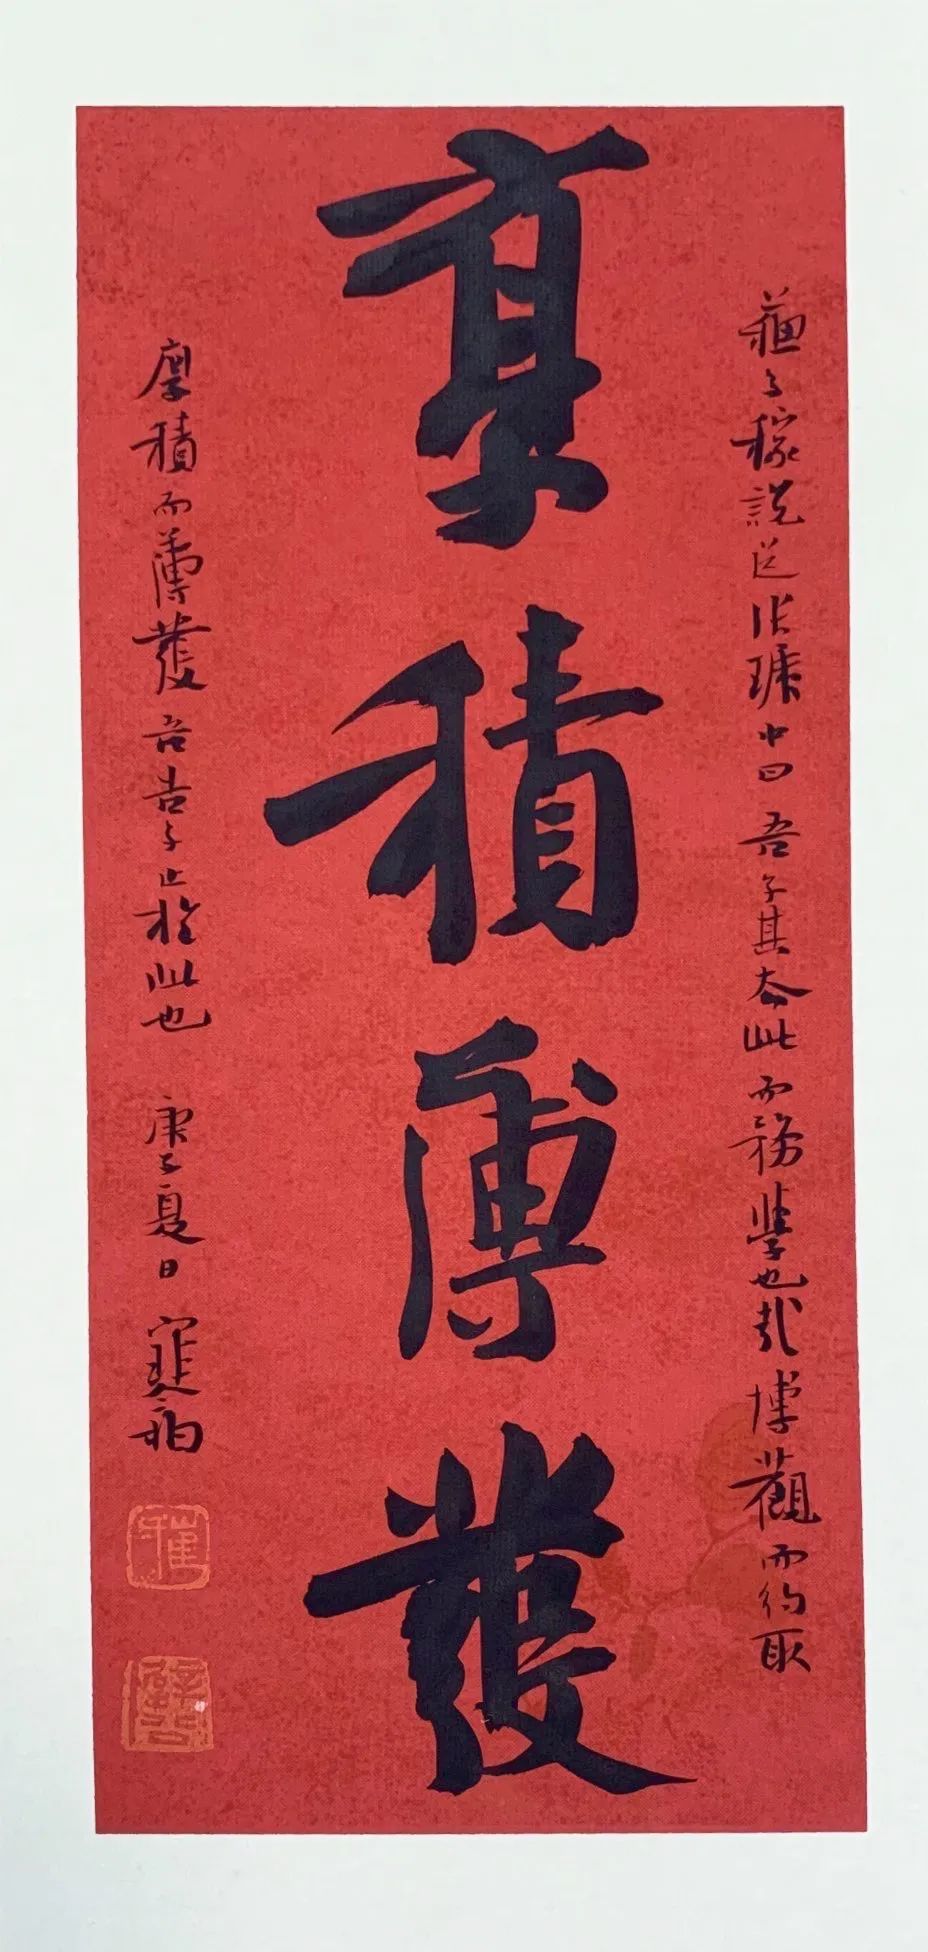 厚積薄發
蘇子稼說送張琥中曰吾子其去此而務學也哉博觀而約取
厚積而薄發吾告子止於此也 庚子夏日 寒柏
崔